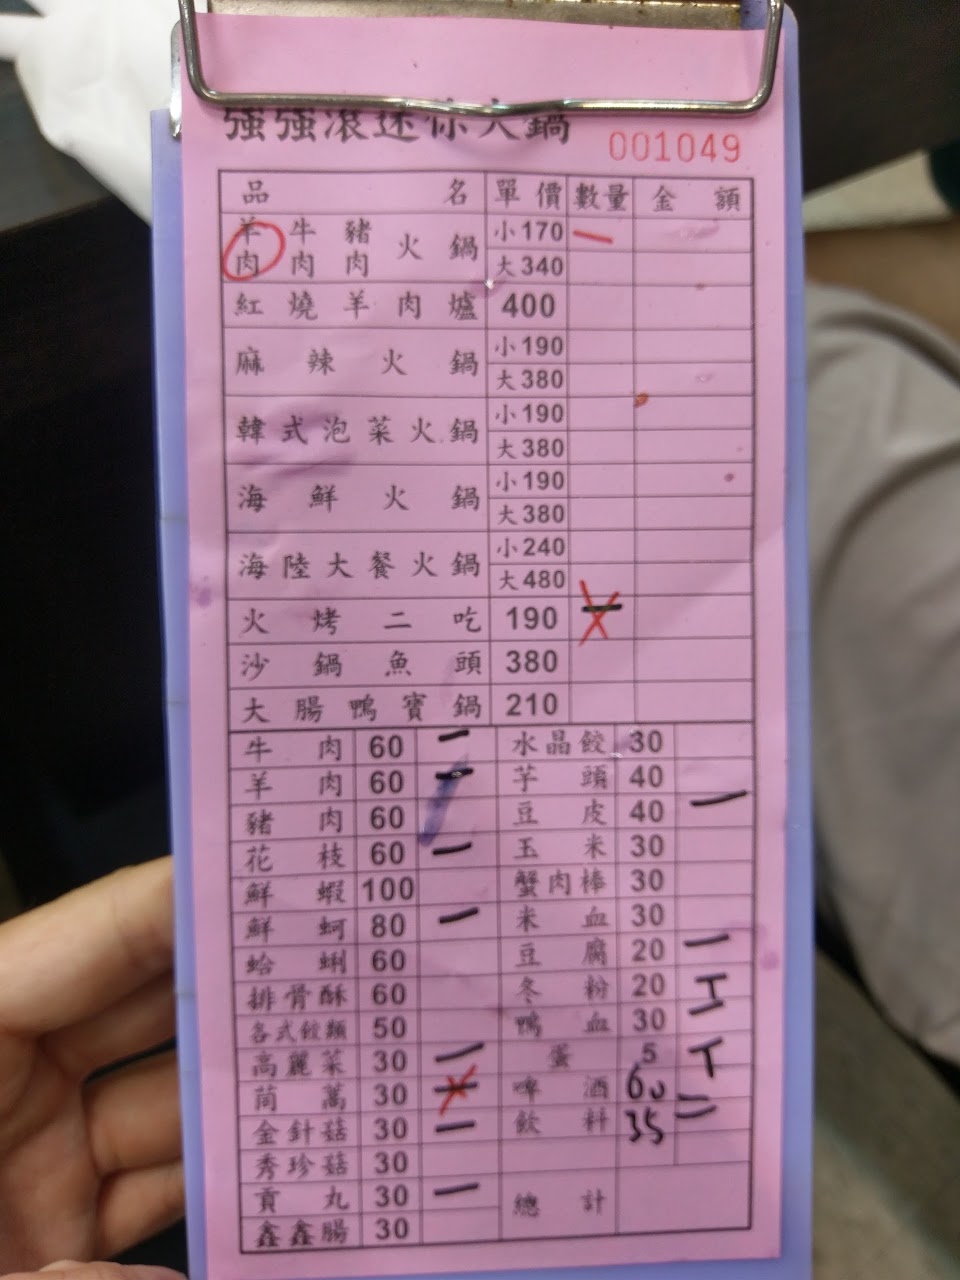 強強滾迷你火鍋
001049
品 名 單價 數量 金額
羊肉 牛肉 豬肉 火鍋 小170 一
大340
紅燒羊肉爐 400
麻辣火鍋 小190
大380
韓式泡菜火鍋 小190
大380
海鮮火鍋 小190
大380
海陸大餐火鍋 小240
大480
火烤二吃 190
沙鍋魚頭 380
大腸鴨寶鍋 210
牛肉 60 一 水晶餃 30
羊肉 60 芋頭 40
豬肉 60 豆皮 40 一
花枝 60 一 玉米 30
鮮蝦 100 蟹肉棒 30
鮮蚵 80 一 米血 30
蛤蜊 60 豆腐 20 一
排骨酥 60 冬粉 20
各式餃類 50 鴨血 30
高麗菜 30 一 蛋 5
茼萵 30 啤酒 60
金針菇 30 一 飲料 35
秀珍菇 30
貢丸 30 一 總計
鑫鑫腸 30